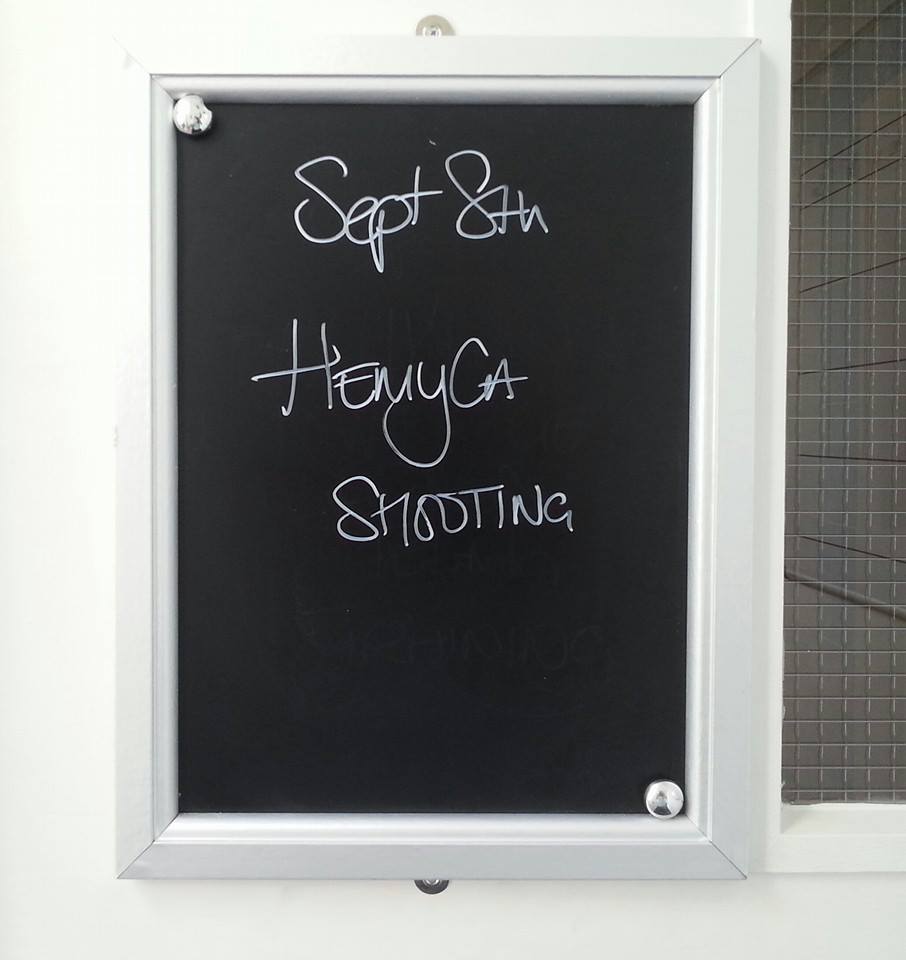 Sept 8th
HEMYCA
SHOOTING